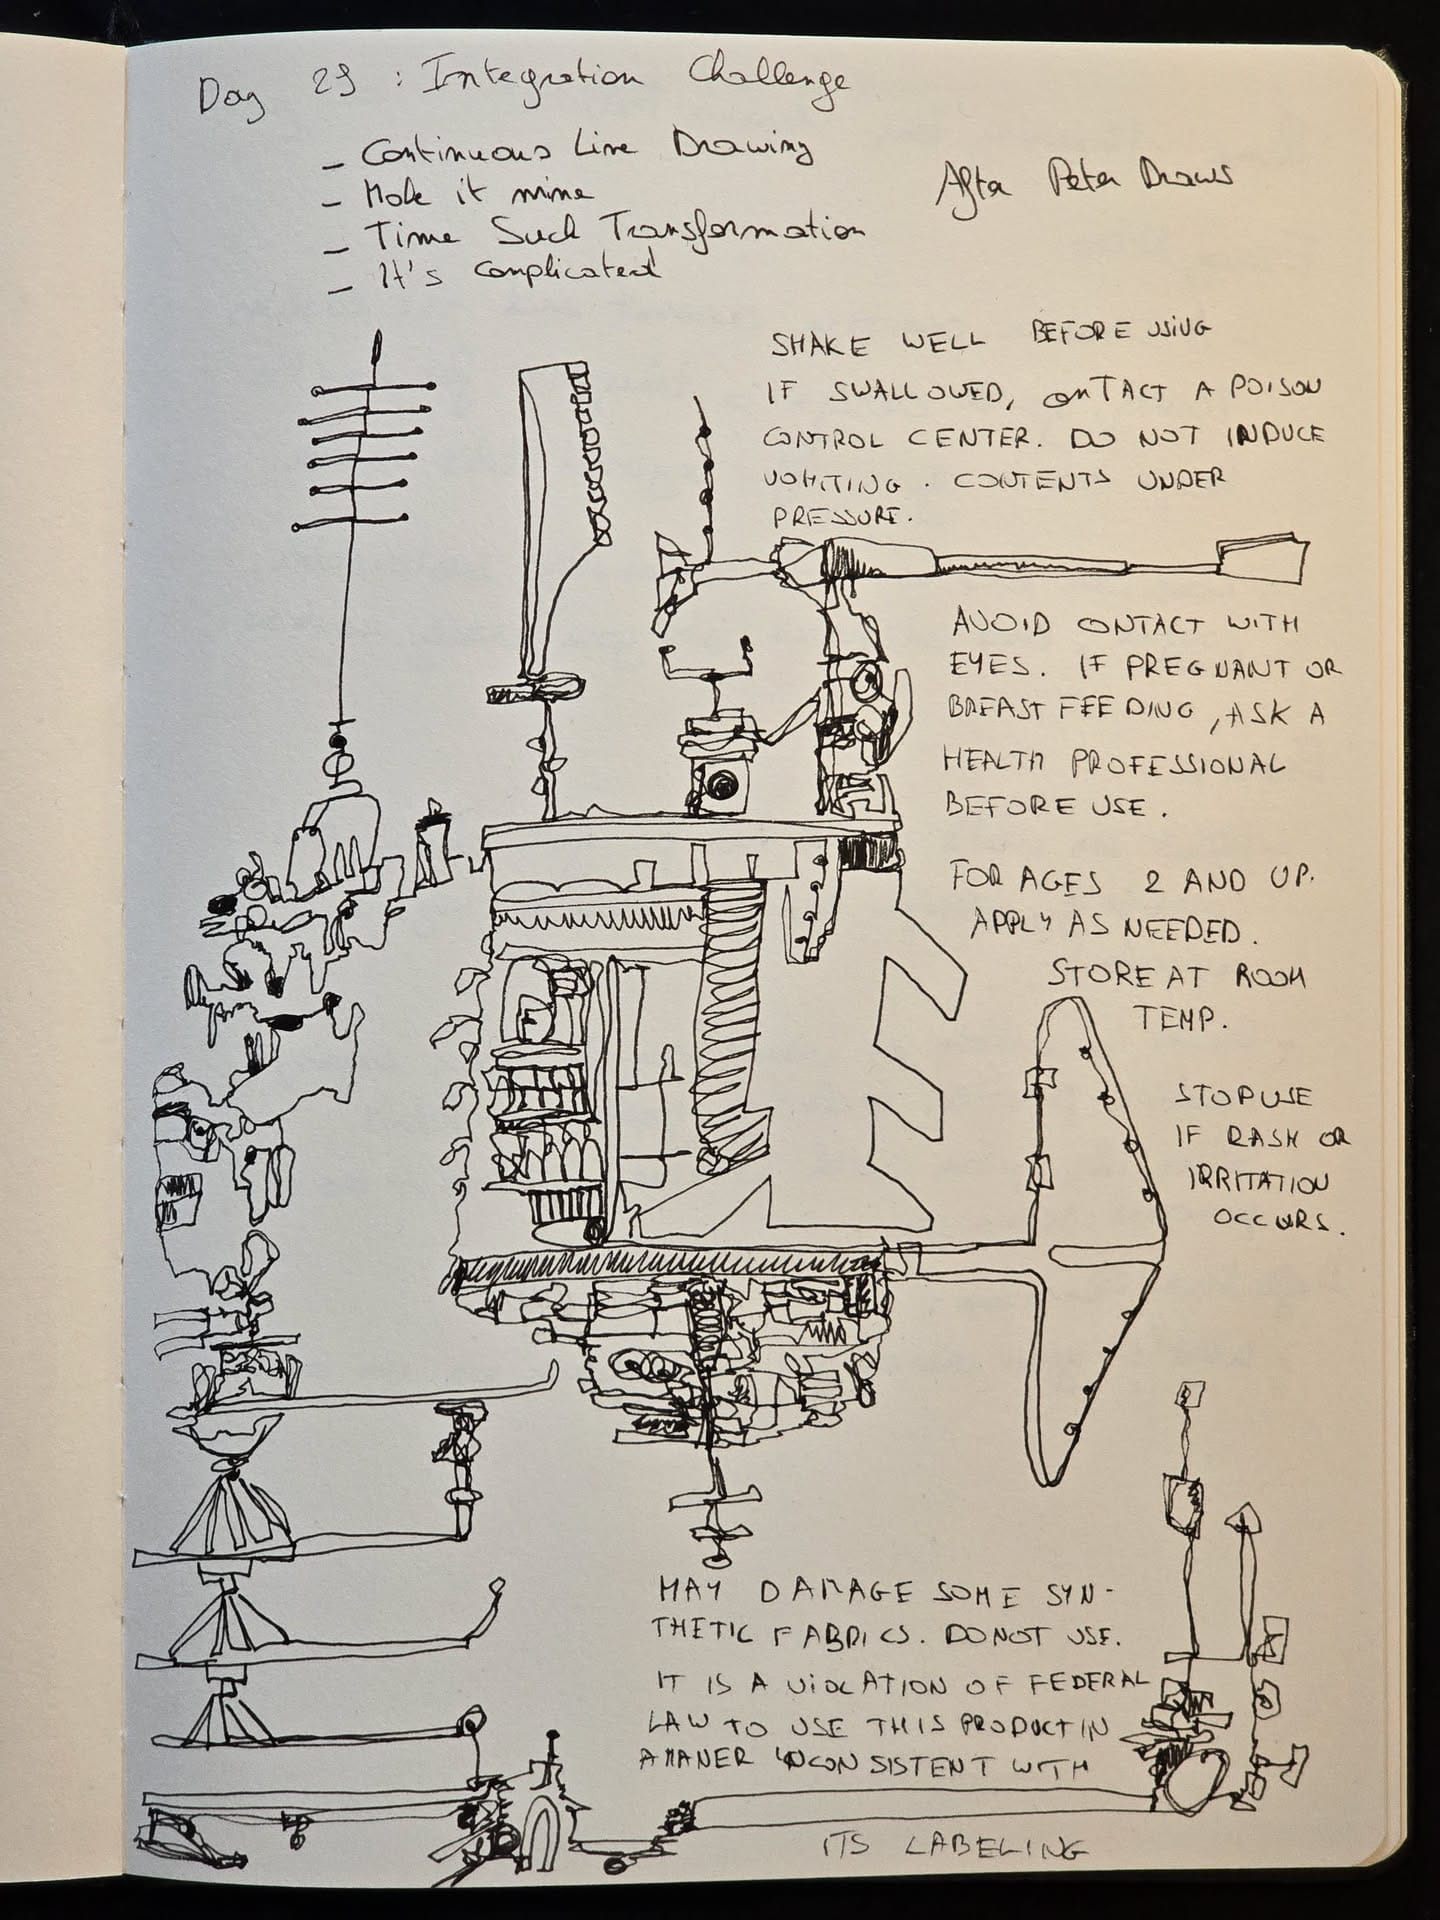 Day 29 : Integration Challenge
_ Continuous Line Drawing
_ Make it mine
After Peter Draws
_ Time Suck Transformation
_ It's complicated
SHAKE WELL BEFORE USING
IF SWALLOWED, CONTACT A POISON
CONTROL CENTER. DO NOT INDUCE
VOMITING. CONTENTS UNDER
PRESSURE.
AVOID CONTACT WITH
EYES. IF PREGNANT OR
BREAST FEEDING, ASK A
HEALTH PROFESSIONAL
BEFORE USE.
FOR AGES 2 AND UP.
APPLY AS NEEDED.
STORE AT ROOM
TEMP.
STOP USE
IF RASH OR
IRRITATION
OCCURS.
MAY DAMAGE SOME SYN-
THETIC FABRICS. DO NOT USE.
IT IS A VIOLATION OF FEDERAL
LAW TO USE THIS PRODUCT IN
A MANER INCONSISTENT WITH
ITS LABELING